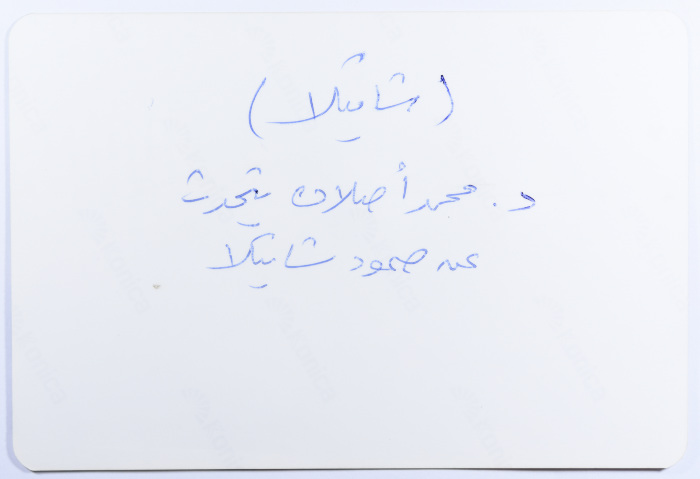 (شاتيلا)
د. محمد أصلان يتحدث
عن صمود شاتيلا